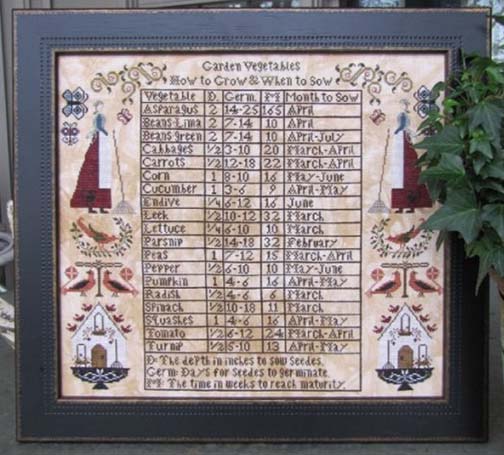 Garden Vegetables
How to Grow & When to Sow
Vegetable D. Germ. M Month to Sow
Asparagus 2 14-25 165 April
Beans-Lima 2 7-14 10 April
Beans green 2 7-14 10 April-July
Cabbages 1/2 3-10 20 March-April
Carrots 1/2 12-18 22 March-April
Corn 1 8-10 16 May-June
Cucumber 1 3-6 9 April-May
Endive 1/4 6-12 16 June
Leek 1/2 10-12 32 March
Lettuce 1/4 6-10 10 March
Parsnip 1/2 14-18 32 February
Peas 1 7-12 15 March-April
Pepper 1/2 6-10 10 May-June
Pumpkin 1 4-6 16 April-May
Radish 1/2 4-6 6 March
Spinach 1/2 10-18 11 March
Squashes 1 4-6 16 April-May
Tomato 1/2 6-12 24 March-April
Turnip 1/2 5-10 13 April-May
D: The depth in inches to sow seedes.
Germ: Days for seedes to germinate.
M: The time in weeks to reach maturity.